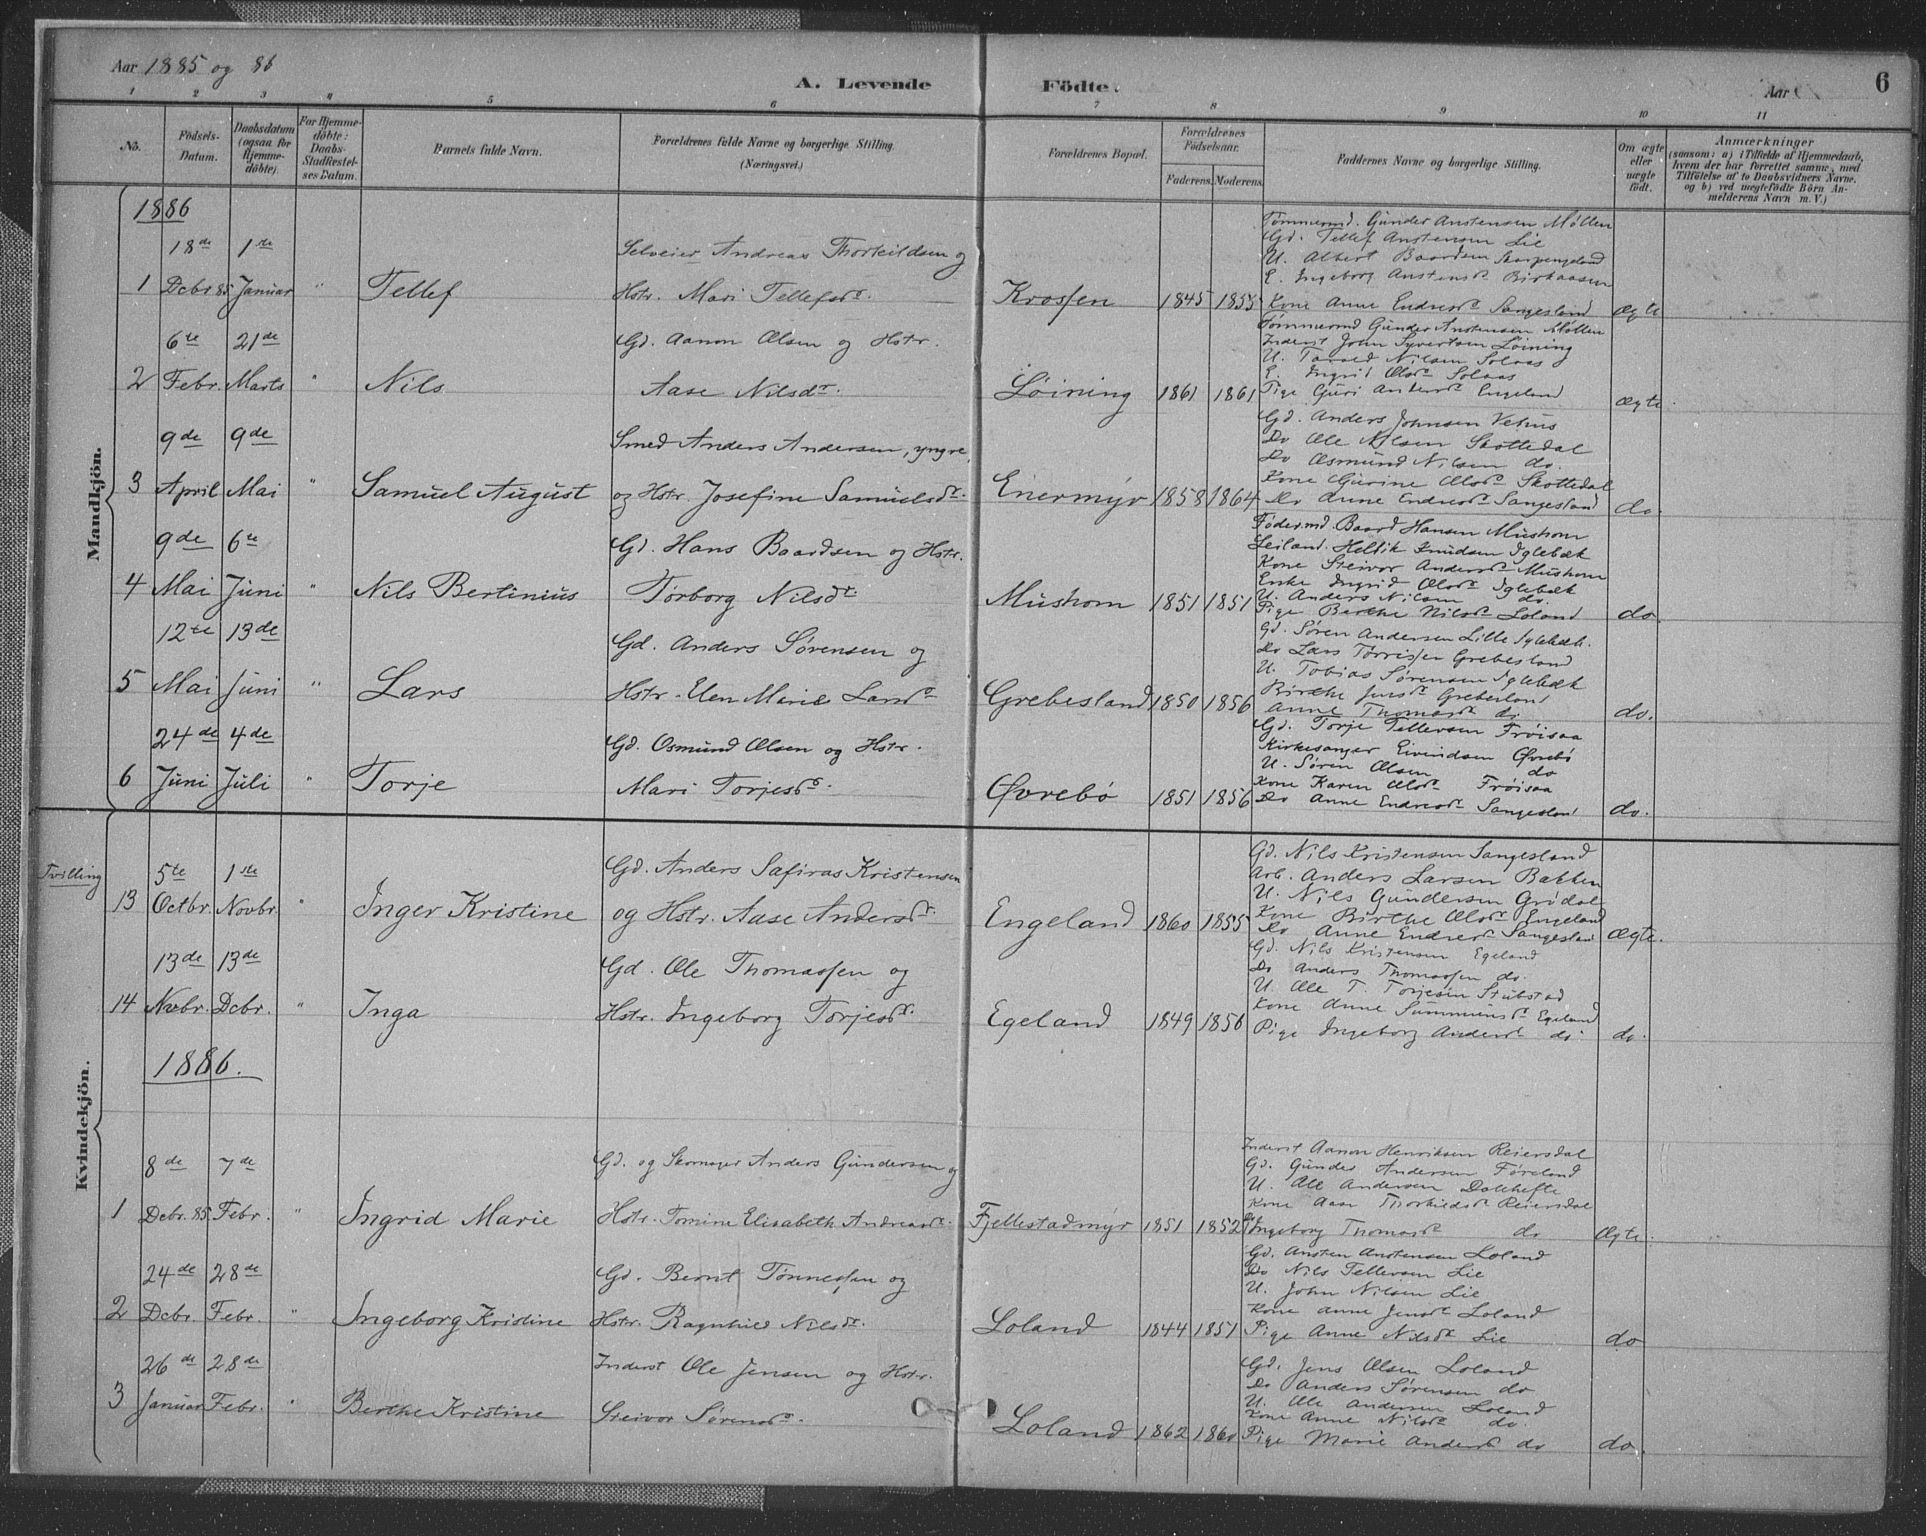 Aar 1885 og 86
A. Levende Födte.
Aar
6
1 2 3 4 5 6 7 8 9 10 11
No.
Födsels-Datum.
Daabsdatum (ogsaa for Hjemme-döbte).
For Hjemme-döbte: Daabs-Stadfæstel-ses Datum.
Barnets fulde Navn.
Forældrenes fulde Navne og borgerlige Stilling.
(Næringsvei.)
Forældrenes Bopæl.
Forældrenes Födselsaar.
Faderens. Moderens.
Faddernes Navne og borgerlige Stilling.
Om ægte eller uægte födt.
Anmærkninger
(saasom: a) i Tilfælde af Hjemmedaab,
hvem der har forrettet samme, med
Tilföielse af to Daabsvidners Navne.
og b) ved uægtefödte Börn An-
melderens Navn m. V.)
Mandkjön.
1886
18de 1ste
1 Dcbr. 85 Januar " Tellef
Selveier Andreas Thorkildsen og
Hstr. Mari Tellefsdr.
Krossen 1845 1855
Tømmermd. Gunder Anstensen Møllen
Gd. Tellef Anstensen Lie
U. Albert Baardsen Skarpengland
E. Ingeborg Anstensdr Birkaasen
Kone Anne Endresdr Sangesland
Ægte
6te 21de
2 Febr. Marts " Nils
Gd. Aanon Olsen og Hstr.
Aase Nilsdr.
Løining 1861 1861
Tømmermd Gunder Anstensen Møllen
Inderst John Syvertsen Løining
U. Tarald Nilsen Solaas
E. Ingrid Olsdr Solaas
Pige Guri Andersdr Engeland
ægte
9de 9de
3 April Mai " Samuel August
Smed Anders Andersen, yngre,
og Hstr. Josefine Samuelsdr.
Enermyr 1858 1864
Gd. Anders Johnsen Vehus
Do Ole Nilsen Skottedal
Do Osmund Nilsen do.
Kone Gurine Olsdr Skottedal
Do Anne Endresdr Sangesland
do.
9de 6te
4 Mai Juni " Nils Bertinius
Gd. Hans Baardsen og Hstr.
Torborg Nilsdr.
Mushom 1851 1851
Føder.md. Baard Hansen Mushom
Leiland. Heltik Knudsen Iglebæk
Kone Steivor Andersdr Mushom
Enke Ingrid Olsdr Iglebæk
U. Anders Nilsen do.
Pige Berthe Nilsdr Loland
do.
12te 13de
5 Mai Juni " Lars
Gd. Anders Sørensen og
Hstr. Elen Marie Larsdr
Grebesland 1850 1856
Gd. Søren Andersen Lille Iglebæk.
Do Lars Torrissen Grebesland
U. Tobias Sørensen Iglebæk
Birthe Jensdr Grebesland
Anne Thomasdr do.
do.
24de 4de
6 Juni Juli " Torje
Gd. Osmund Olsen og Hstr.
Mari Torjesdr.
Øvrebö 1851 1856
Gd. Torje Tellevsen Frøisaa
Kirkesanger Eivindsen Øvrebö
U. Søren Olsen do
Kone Karen Olsdr Frøisaa
Do Anne Endresdr Sangesland
do.
Kvindekjön.
Tvilling
5te 1ste
13 Octbr. Novbr. " Inger Kristine
Gd. Anders Safiras Kristensen
og Hstr. Aase Andersdr.
Engeland 1860 1855
Gd. Nils Kristensen Sangesland
Arb. Anders Larsen Bakken
U. Nils Gundersen Gridal
Kone Birthe Olsdr Engeland
Do Anne Endresdr Sangesland
ægte.
13de 13de
14 Novbr. Dcbr. " Inga
Gd. Ole Thomassen og
Hstr. Ingeborg Torjesdr.
Egeland 1849 1856
Gd. Nils Kristensen Egeland
Do Anders Thomassen do.
U. Ole T. Torjesen Stubstad
Kone Anne Egeland
Pige Ingeborg Andersdr do.
do.
1886.
8de 7de
1 Dcbr. 85 Febr. " Ingrid Marie
Gd. og Skomager Anders Gundersen og
Hstr. Tomine Elisabeth Andreasdr.
Fjellestadmyr 1851 1852
Inderst Aanon Henriksen Reiersdal
Gd. Gunder Andersen Føreland
U. Ole Andersen Dalehefte
Kone Aase Thorkildsdr Reiersdal
Ingeborg Thomasdr do
Ægte.
24de 28de
2 Dcbr. Febr. " Ingeborg Kristine
Gd. Bernt Tønnessen og
Hstr. Ragnhild Nilsdr.
Loland 1844 1851
Gd. Ansten Anstensen Loland
Do Nils Tellevsen Lie
U. John Nilsen Lie
Kone Anne Jensdr Loland
Pige Anne Nilsdr Lie
do
26de 28de
3 Januar Febr. " Berthe Kristine
Inderst Ole Jensen og Hstr.
Steivor Sørensdr.
Loland 1862 1860
Gd. Jens Olsen Loland
Do Anders Sørensen do
U. Ole Andersen Loland
Kone Anne Nilsdr do.
Pige Marie Andersdr do
do.